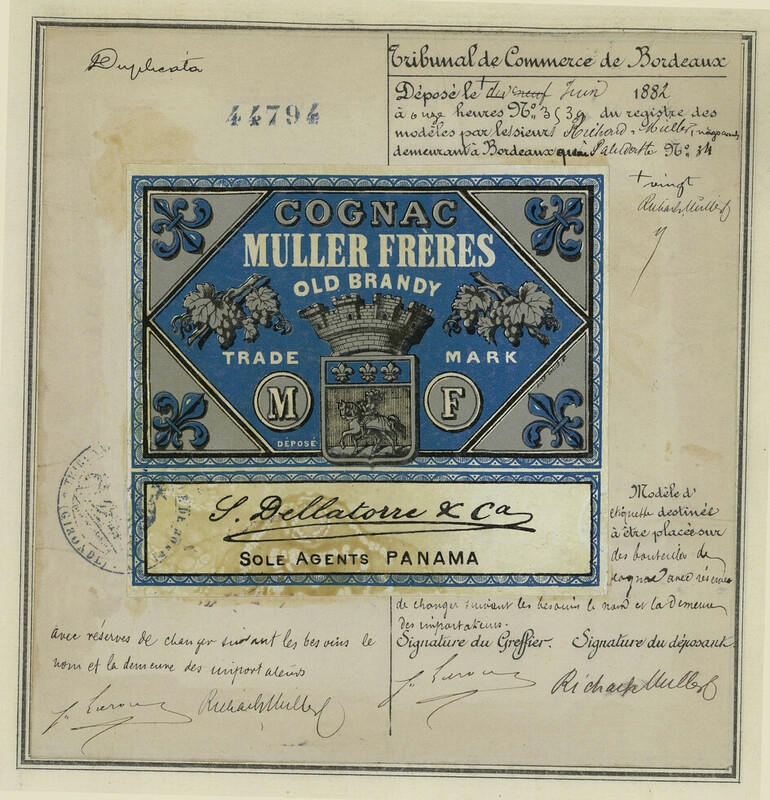 Duplicata
44794
Tribunal de Commerce de Bordeaux
Déposé le + dix neuf Juin 1882
à onze heures No. 3539 du registre des
modèles par le sieur Richard Muller, négociant
demeurant à Bordeaux quai Paludatte No. 34
+ vingt
Richard Muller
COGNAC
MULLER FRÈRES
OLD BRANDY
TRADE MARK
M F
DÉPOSÉ
S. Dellatorre & Ca
SOLE AGENTS PANAMA
GIRONDE
Modèle d'
étiquette destinée
à être placée sur
des bouteilles de
cognac avec réserves
de changer suivant les besoins le nom et la demeure
des importateurs.
Signature du Greffier. Signature du déposant.
Richard Muller
avec réserves de changer suivant les besoins le
nom et la demeure des importateurs
Richard Muller